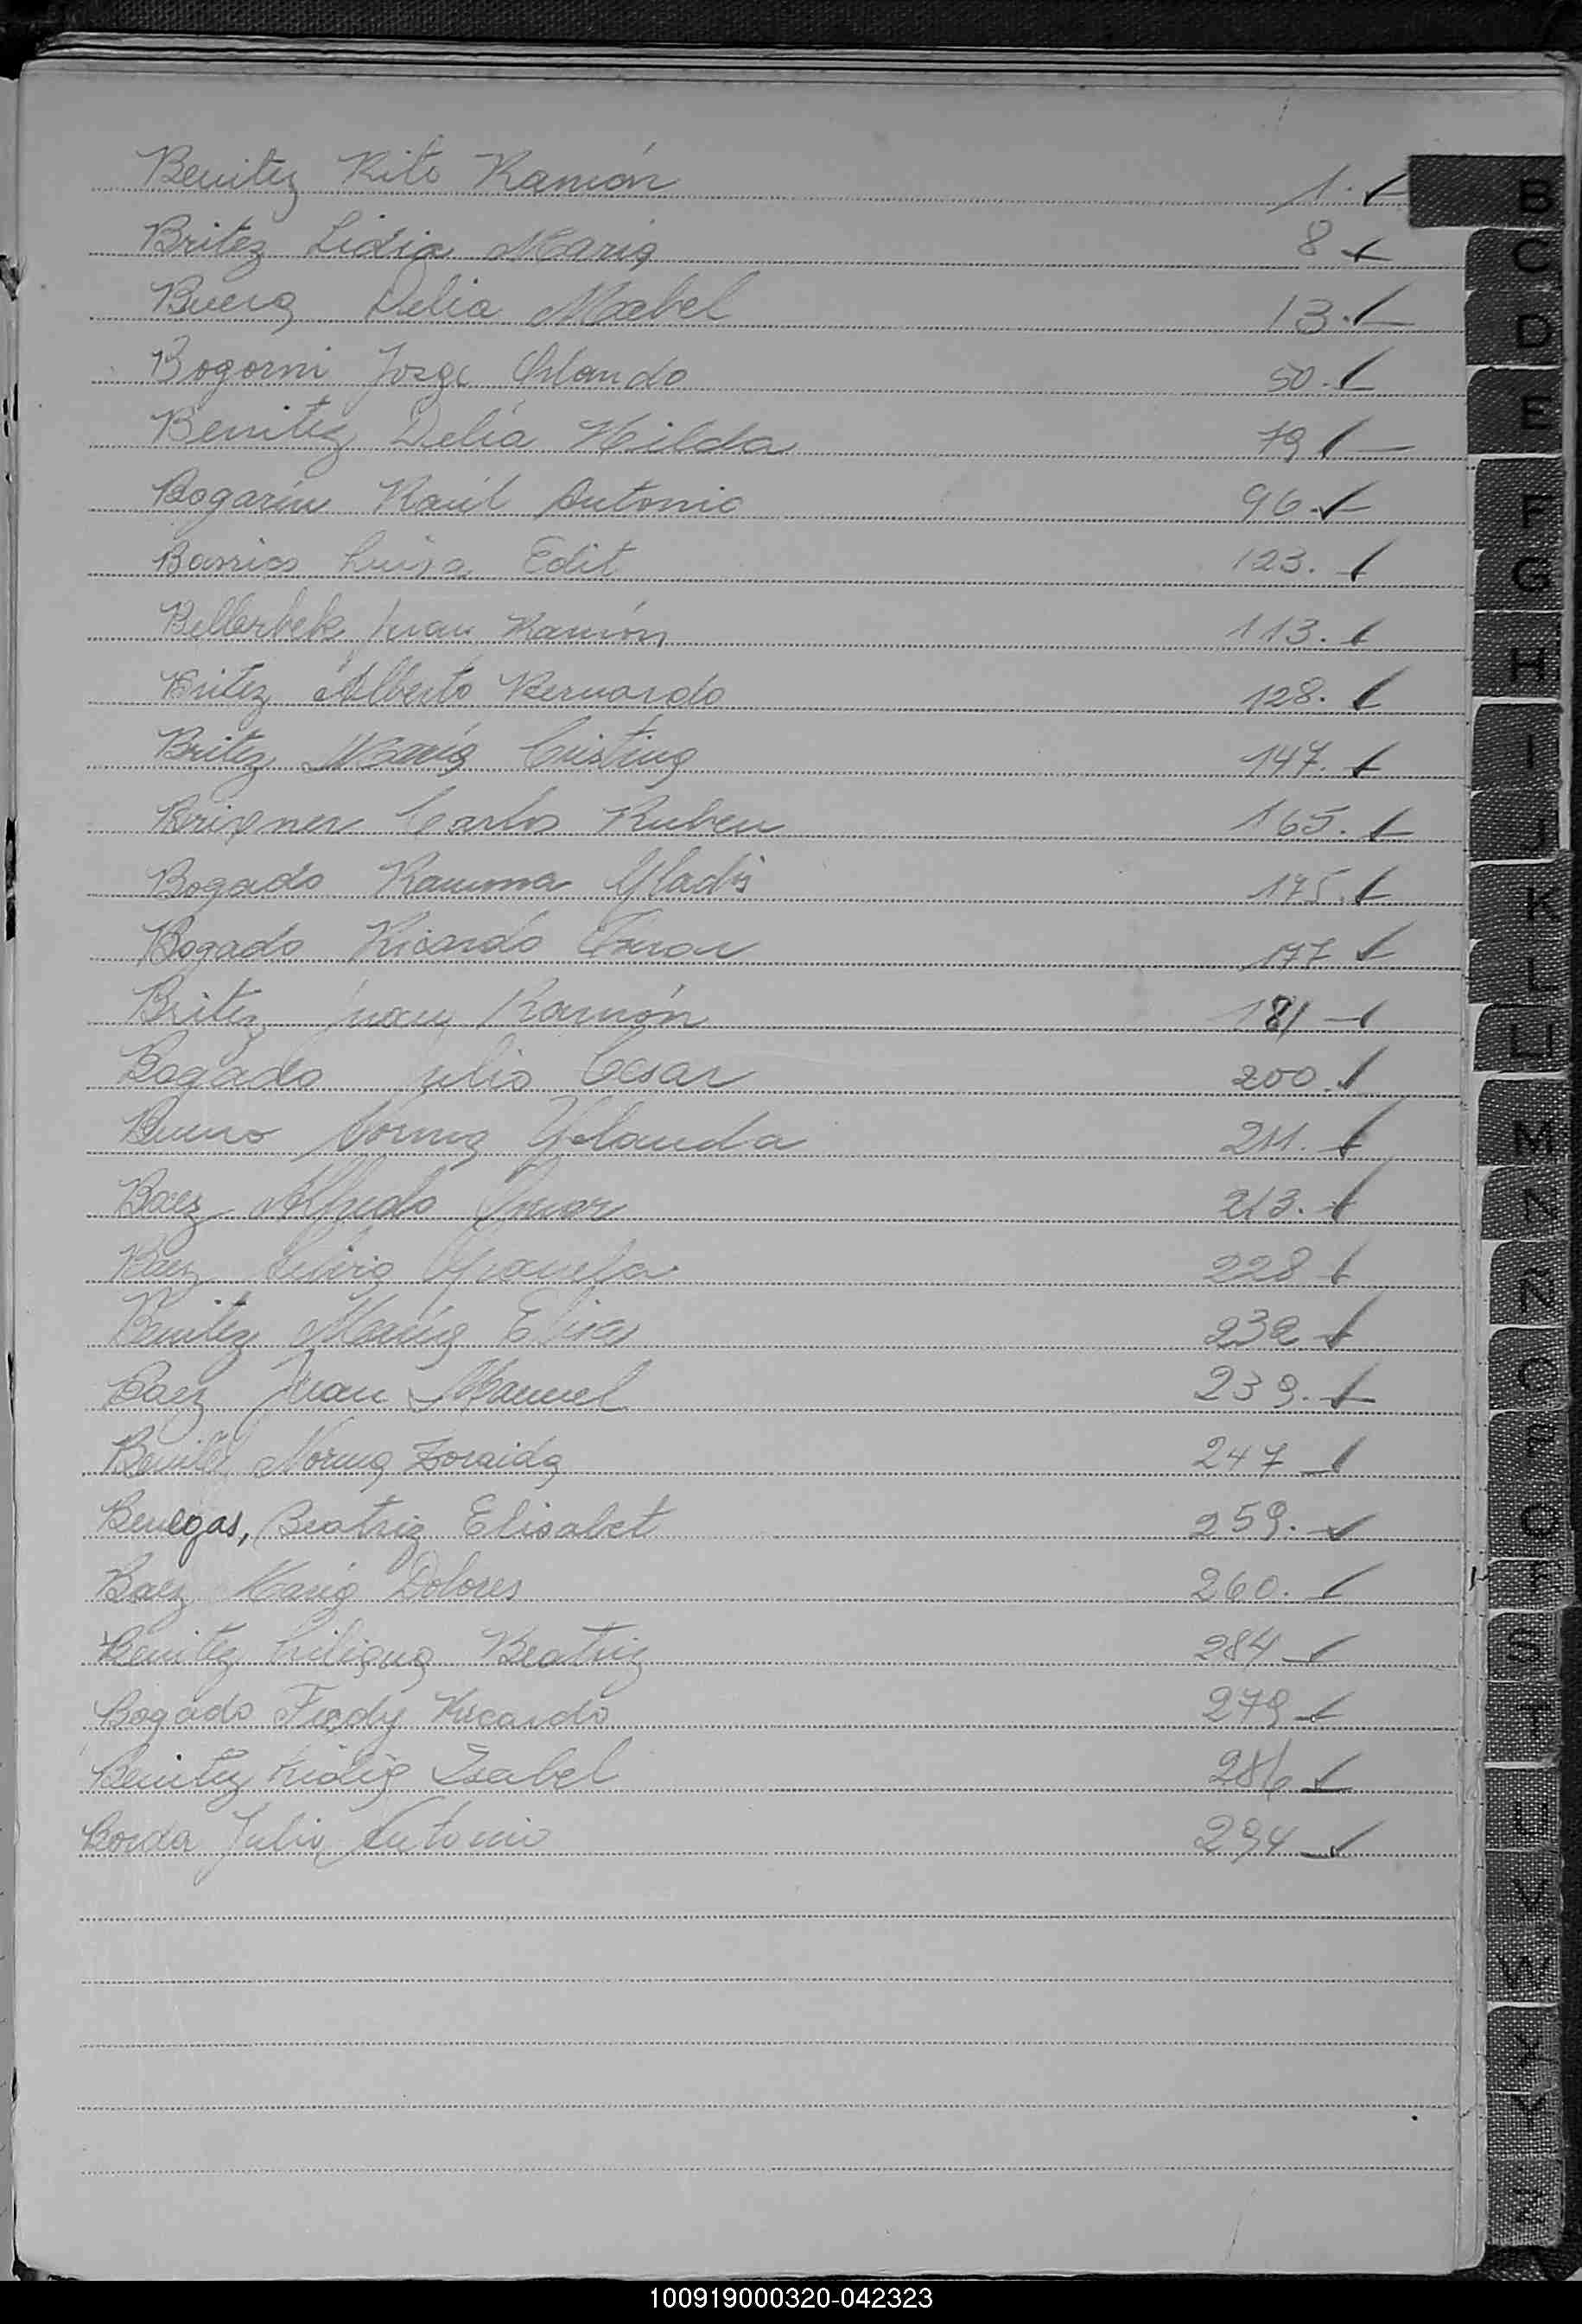 Benitez Rito Ramón 1.
Britez Lidia Maria 8
Buera Delia Mabel 13.
Bogorni Jorge Orlando 50.
Benitez Delia Hilda 79
Bogarin Raúl Antonio 96.
Barrios Luisa Edit 123.
Juan Ramón 113.
Britez Alberto Bernardo 128.
Britez María Cristina 147.
Brixner Carlos Ruben 165.
Bogado Ramona Gladis 175.
Bogado Ricardo 177
Britez Juan Ramón 181
Bogado Julio Cesar 200.
Bueno Norma Yolanda 211.
Baez Alfredo Omar 213.
Baez 228
Benitez María Elisa 232
Baez Juan Manuel 239.
Benitez Norma Zoraida 247
Benegas, Beatriz Elisabet 259.
Baez Maria Dolores 260.
Benitez Liliana Beatriz 284
Bogado Fredy Ricardo 279
Benitez Lidia Isabel 286
Borda Julio Antonio 294
B
C
D
E
F
G
H
I
J
K
L
LL
M
N
Ñ
O
P
Q
R
S
T
U
V
W
X
Y
Z
100919000320-042323